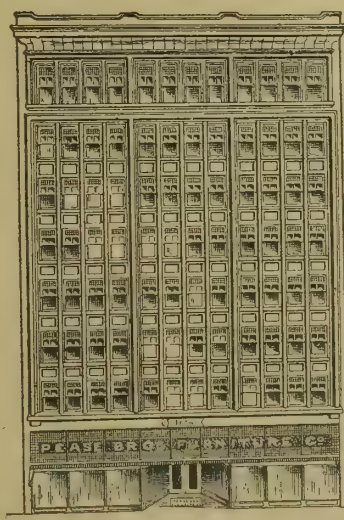 PEASE BROS. FURNITURE Co